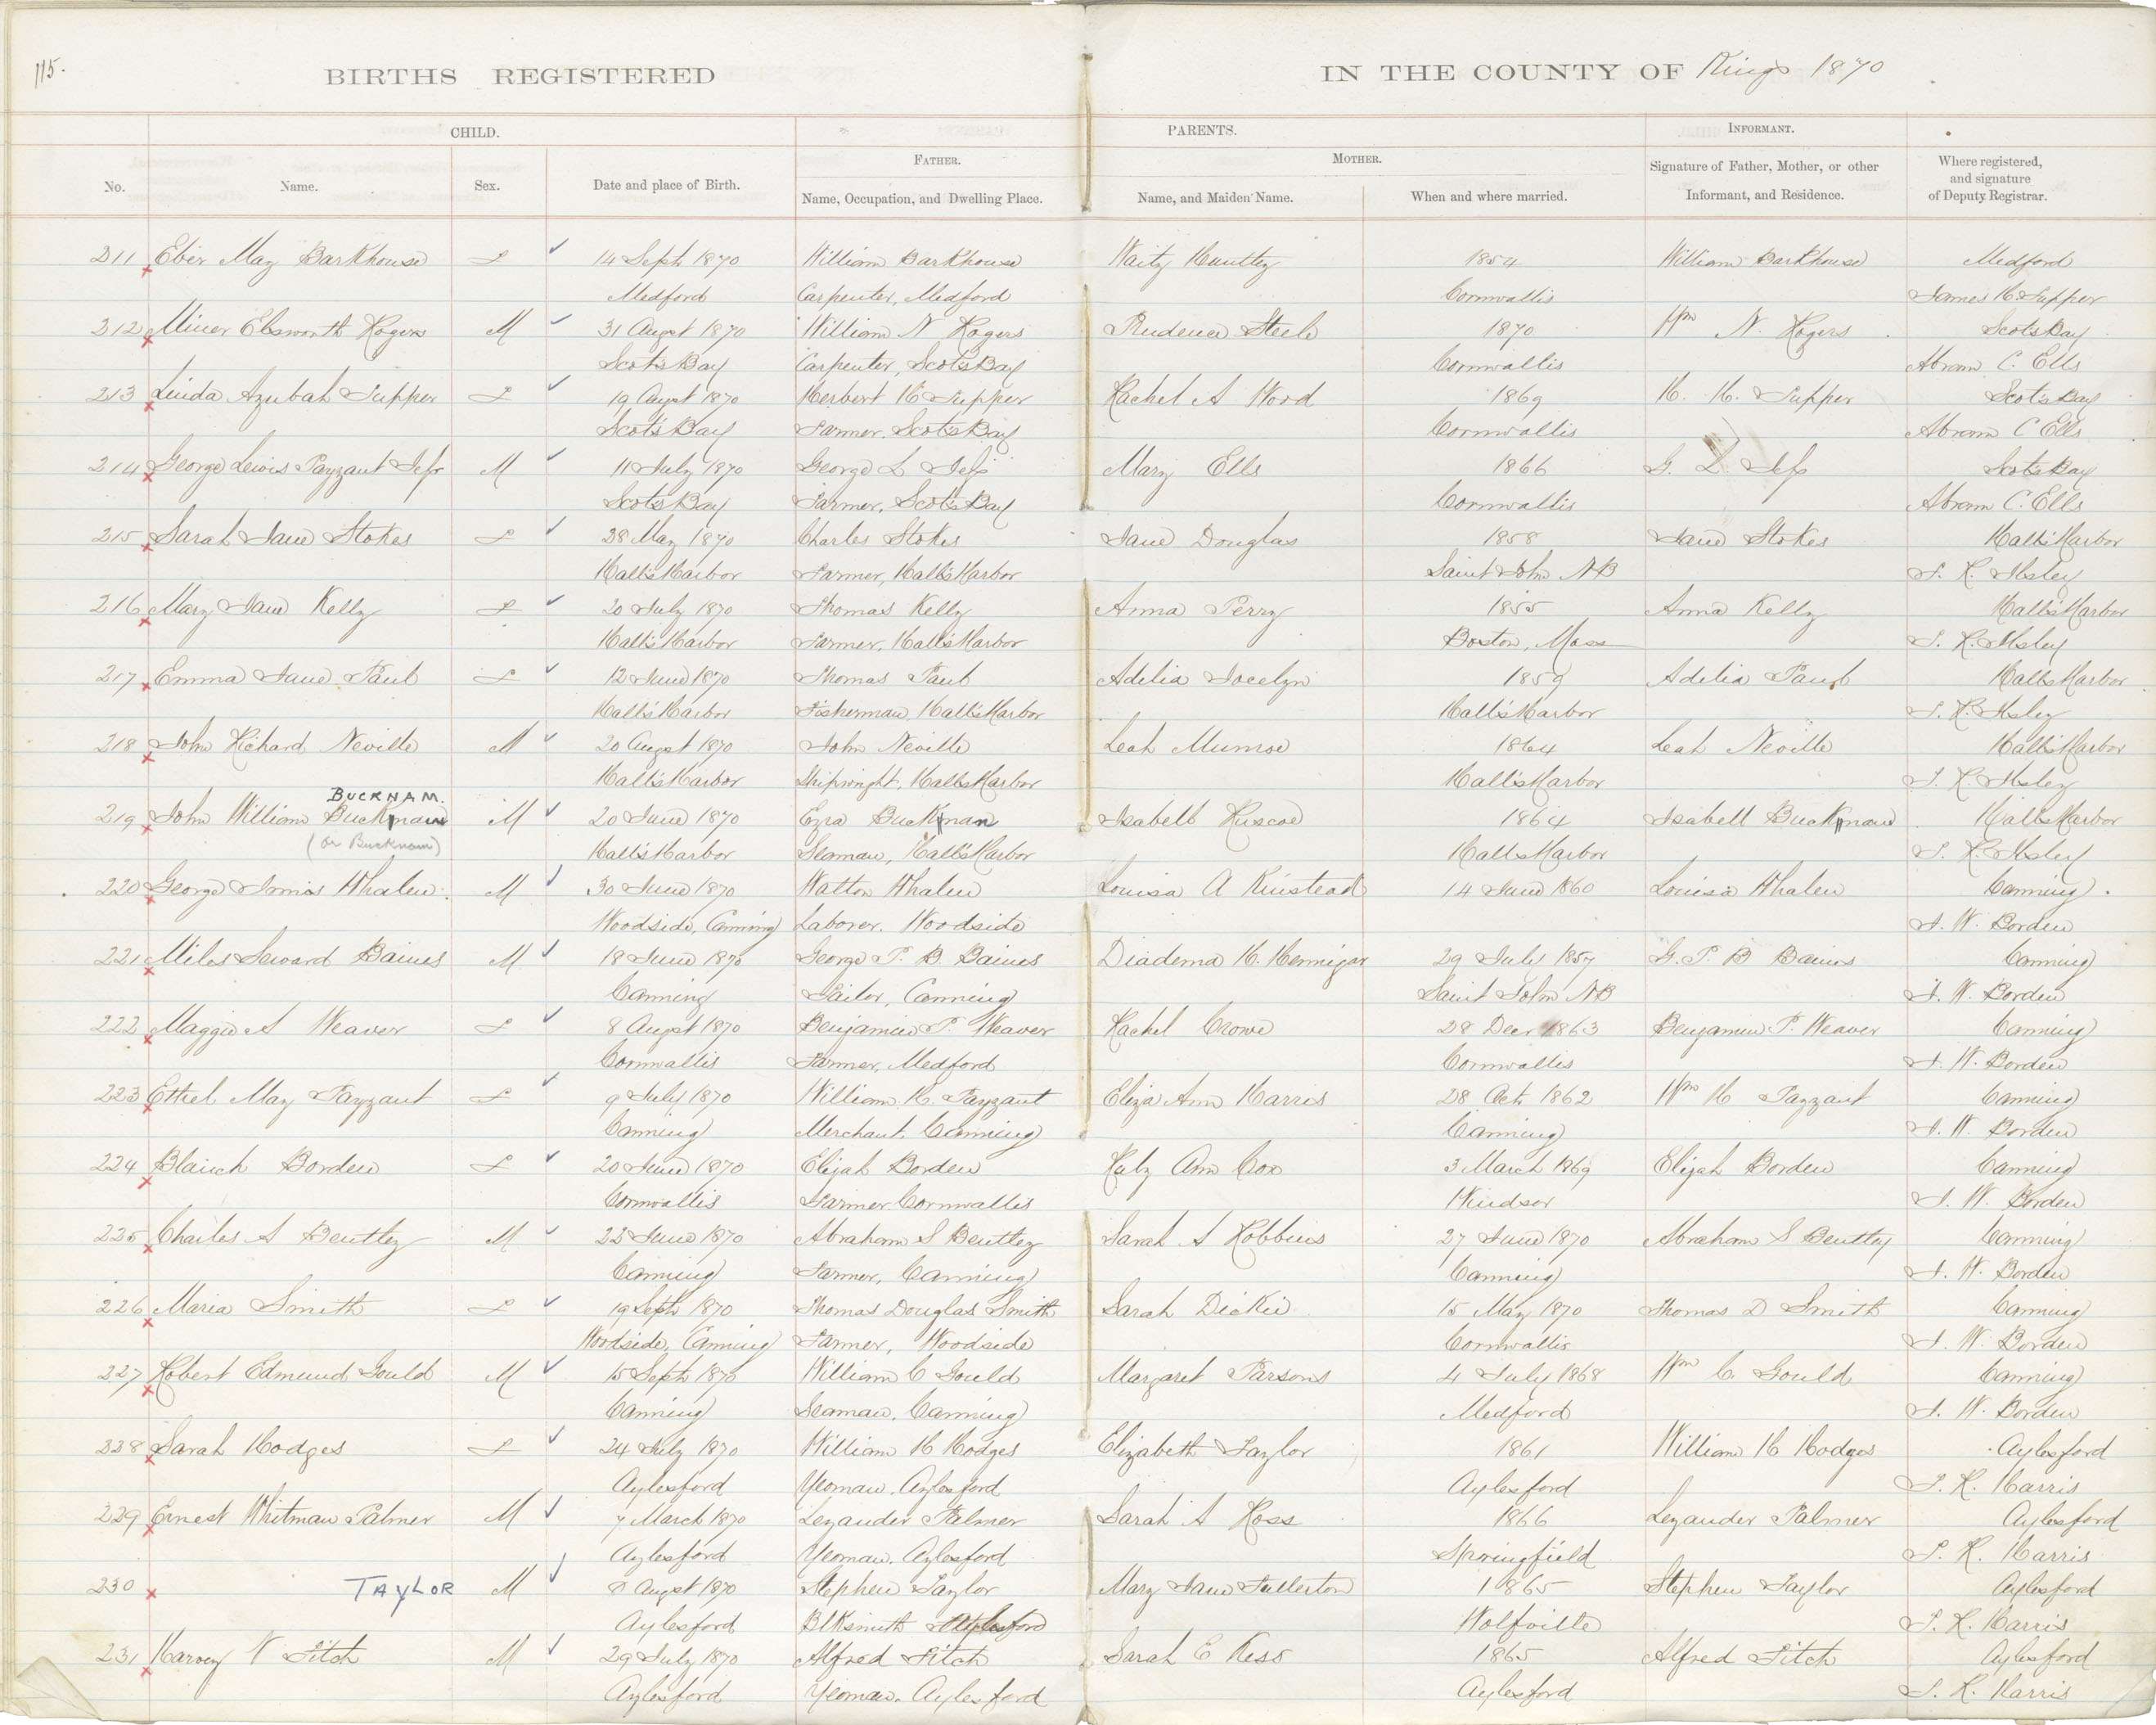 115.
BIRTHS REGISTERED IN THE COUNTY OF Kings 1870
CHILD. PARENTS. INFORMANT.
FATHER. MOTHER.
No. Name. Sex. Date and place of Birth. Name, Occupation, and Dwelling Place. Name, and Maiden Name. When and where married. Signature of Father, Mother, or other Informant, and Residence. Where registered, and signature of Deputy Registrar.
211 Eber May Barkhouse F 14 Sept 1870 William Barkhouse Waity Huntley 1854 William Barkhouse Medford
Medford Carpenter, Medford Cornwallis James H. Tupper
212 Miner Elsworth Rogers M 31 Augst 1870 William N Rogers Prudence Steele 1870 Wm N. Rogers ScotsBay
Scot's Bay Carpenter, Scot'sBay Cornwallis Abram C. Ells
213 Linda Azubah Tupper F 19 Augst 1870 Herbert H Tupper Rachel A Wood 1869 H. H. Tupper Scot's Bay
Scot's Bay Farmer, Scot'sBay Cornwallis Abram C Ells
214 George Lewis Payzant Jefs M 11 July 1870 George L Jefs Mary Ells 1866 G. L Jefs Scot's Bay
Scot's Bay Farmer, Scot's Bay Cornwallis Abram C. Ells
215 Sarah Jane Stokes F 28 May 1870 Charles Stokes Jane Douglas 1858 Jane Stokes Hall'sHarbor
Hall'sHarbor Farmer, Hall'sHarbor Saint John NB S. R. Ilsley
216 Mary Jane Kelly F 20 July 1870 Thomas Kelly Anna Perry 1855 Anna Kelly Hall'sHarbor
Hall'sHarbor Farmer, Hall'sHarbor Boston, Mass S. R. Ilsley
217 Emma Jane Paul F 12 June 1870 Thomas Paul Adelia Jocelyn 1859 Adelia Paul Hall'sHarbor
Hall'sHarbor Fisherman, Hall'sHarbor Hall'sHarbor S. R. Ilsley
218 John Richard Neville M 20 Augst 1870 John Neville Leah Munroe 1864 Leah Neville Hall'sHarbor
Hall'sHarbor Shipwright, Hall'sHarbor Hall'sHarbor S. R. Ilsley
BUCKNAM.
219 John William Bucknam M 20 June 1870 Ezra Bucknan Isabell Huscoe 1864 Isabell Bucknam Hall'sHarbor
(or Bucknam) Hall'sHarbor Seaman, Hall'sHarbor HallsHarbor S. R. Ilsley
220 George James Whalen M 30 June 1870 Walton Whalen Louisa A Kinstead 14 June 1860 Louisa Whalen Canning
Woodside, Canning Laborer. Woodside J. W. Borden
221 Miles Seward Baines M 18 June 1870 George P. B. Baines Diadema H. Hennigar 29 July 1857 G. P. B Baines Canning
Canning Tailor, Canning Saint John NB J. W. Borden
222 Maggie A Weaver F 8 Augst 1870 Benjamin P. Weaver Rachel Crowe 28 Decr 1863 Benjamin P. Weaver Canning
Cornwallis Farmer, Medford Cornwallis J. W. Borden
223 Ethel May Payzant F 9 July 1870 William H. Payzant Eliza Ann Harris 28 Oct 1862 Wm H Payzant Canning
Canning Merchant. Canning Canning J. W. Borden
224 Blanch Borden F 20 June 1870 Elijah Borden Ann Cox 3 March 1869 Elijah Borden Canning
Cornwallis Farmer Cornwallis Windsor J. W. Borden
225 Charles A Bentley M 22 June 1870 Abraham S Bentley Sarah A Robbins 27 June 1870 Abraham S Bentley Canning
Canning Farmer, Canning Canning J. W. Borden
226 Maria Smith F 19 Sept 1870 Thomas Douglas Smith Sarah Dickie 15 May 1870 Thomas D Smith Canning
Woodside, Canning Farmer, Woodside Cornwallis J. W. Borden
227 Robert Edmund Gould M 15 Sept 1870 William C Gould Margaret Parsons 4 July 1868 Wm C. Gould Canning
Canning Seaman, Canning Medford J. W. Borden
228 Sarah Hodges F 24 July 1870 William H Hodges Elizabeth Taylor 1861 William H Hodges Aylesford
Aylesford Yeoman. Aylesford Aylesford S. R. Harris
229 Ernest Whitman Palmer M 7 March 1870 Lezander Palmer Sarah A Ross 1866 Lezander Palmer Aylesford
Aylesford Yeoman. Aylesford Springfield S. R. Harris
230 TAYLOR M 8 Augst 1870 Stephen Taylor Mary Jane Fullerton 1865 Stephen Taylor Aylesford
Aylesford Blksmith Aylesford Wolfville S. R. Harris
231 Harvey V Fitch M 29 July 1870 Alfred Fitch Sarah E Kess 1865 Alfred Fitch Aylesford
Aylesford Yeoman. Aylesford Aylesford S. R. Harris